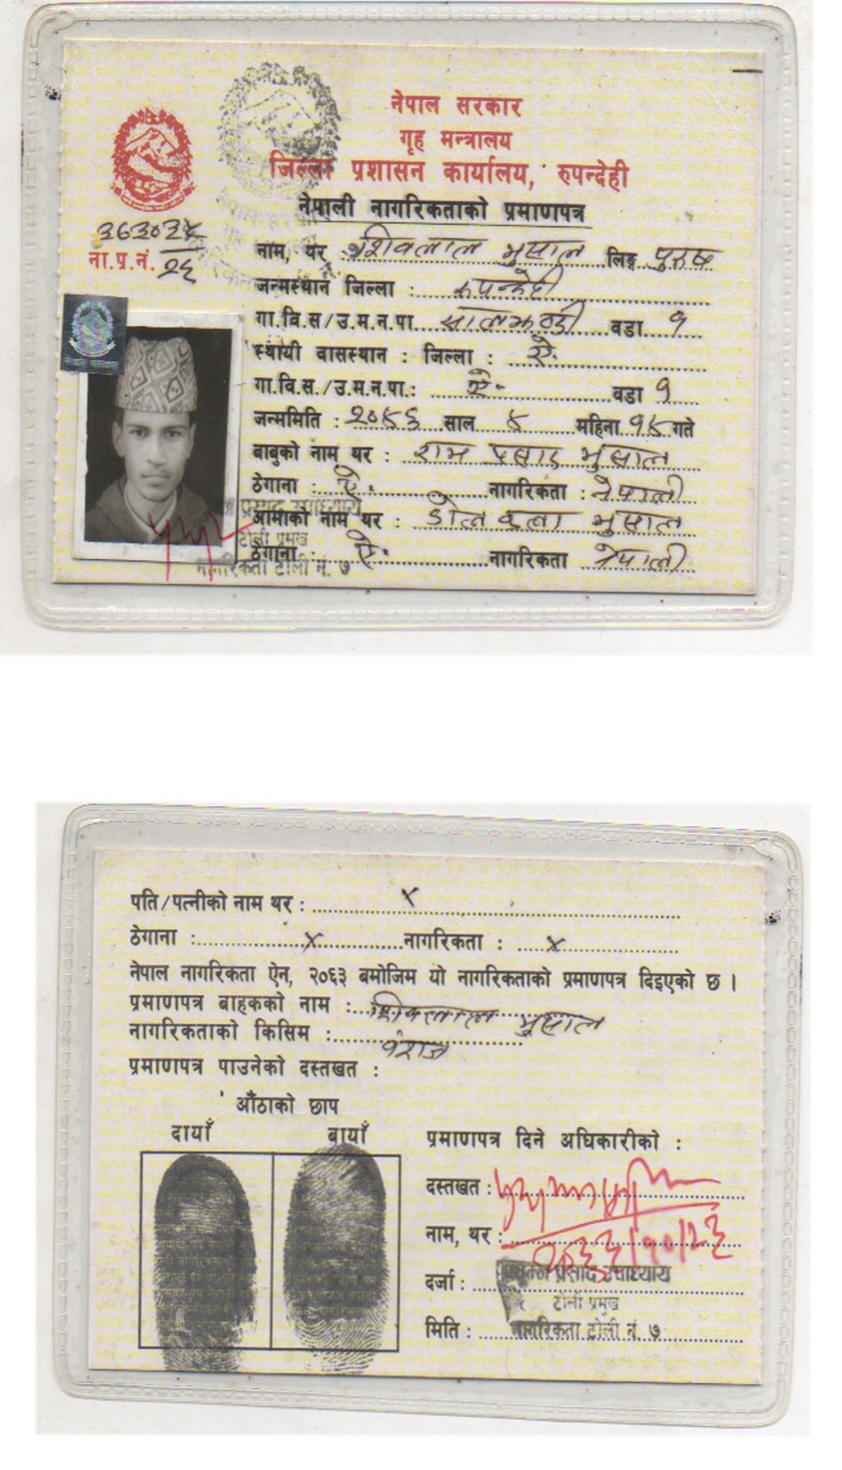 नेपाल सरकार
गृह मन्त्रालय
जिल्ला प्रशासन कार्यालय, रुपन्देही
नेपाली नागरिकताको प्रमाणपत्र
ना.प्र.नं. २६
नाम, थर शिवलाल भुसाल लिङ्ग पुरुष
जन्मस्थान जिल्ला : रुपन्देही
गा.वि.स/उ.म.न.पा सालझण्डी वडा १
स्थायी बासस्थान : जिल्ला : ऐ.
गा.वि.स./उ.म.न.पा.: ऐ. वडा १
जन्ममिति : २०४६ साल ४ महिना १४ गते
बाबुको नाम थर : राम प्रसाद भुसाल
ठेगाना : ऐ. नागरिकता : नेपाली
आमाको नाम थर : भुसाल
ठेगाना : ऐ. नागरिकता नेपाली
प्रसाद उपाध्याय
टोली प्रमुख
नागरिकता टोली नं. ७
पति/पत्नीको नाम थर : x
ठेगाना : x नागरिकता : x
नेपाल नागरिकता ऐन, २०६३ बमोजिम यो नागरिकताको प्रमाणपत्र दिइएको छ ।
प्रमाणपत्र बाहकको नाम : शिवलाल भुसाल
नागरिकताको किसिम : वंशज
प्रमाणपत्र पाउनेको दस्तखत :
औंठाको छाप
दायाँ बायाँ
प्रमाणपत्र दिने अधिकारीको :
दस्तखत :
नाम, थर : २०६३/१०/२३
दर्जा : प्रसाद उपाध्याय
टोली प्रमुख
मिति : नागरिकता टोली नं. ७